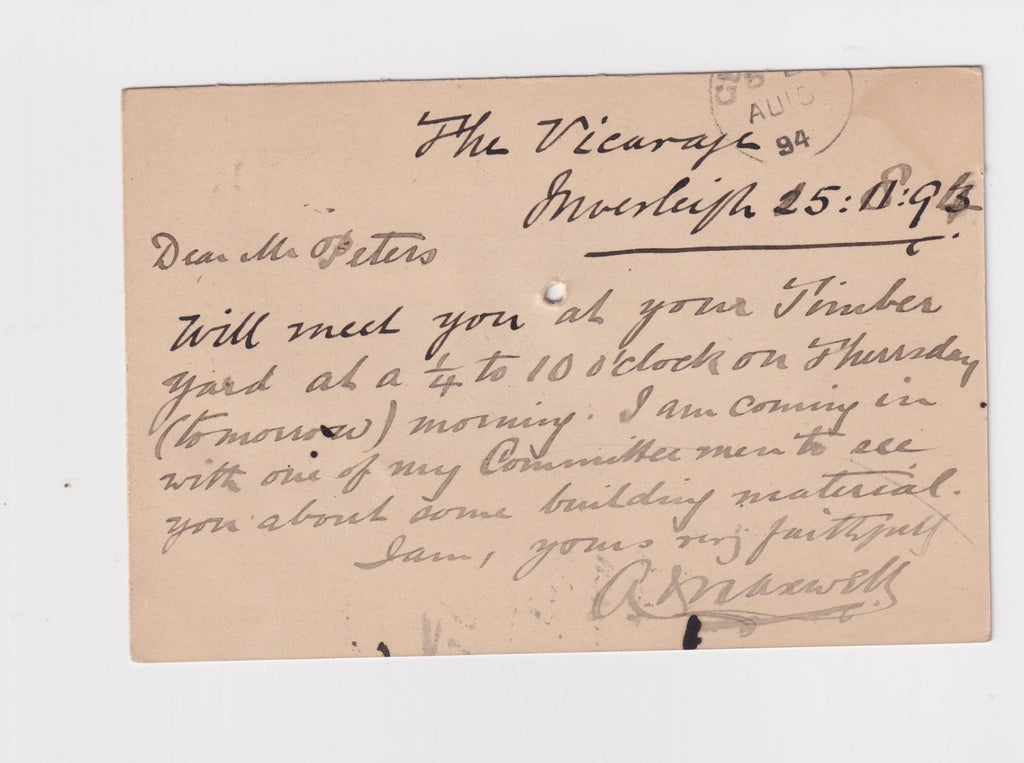 AU 15
94
The Vicarage
Inverleigh 25:11:93
Dear Mr Peters
Will meet you at your Timber
yard at a ¼ to 10 o'clock on Thursday
(tomorrow) morning. I am coming in
with one of my Committee men to see
you about some building material.
I am, yours very faithfully
Maxwell